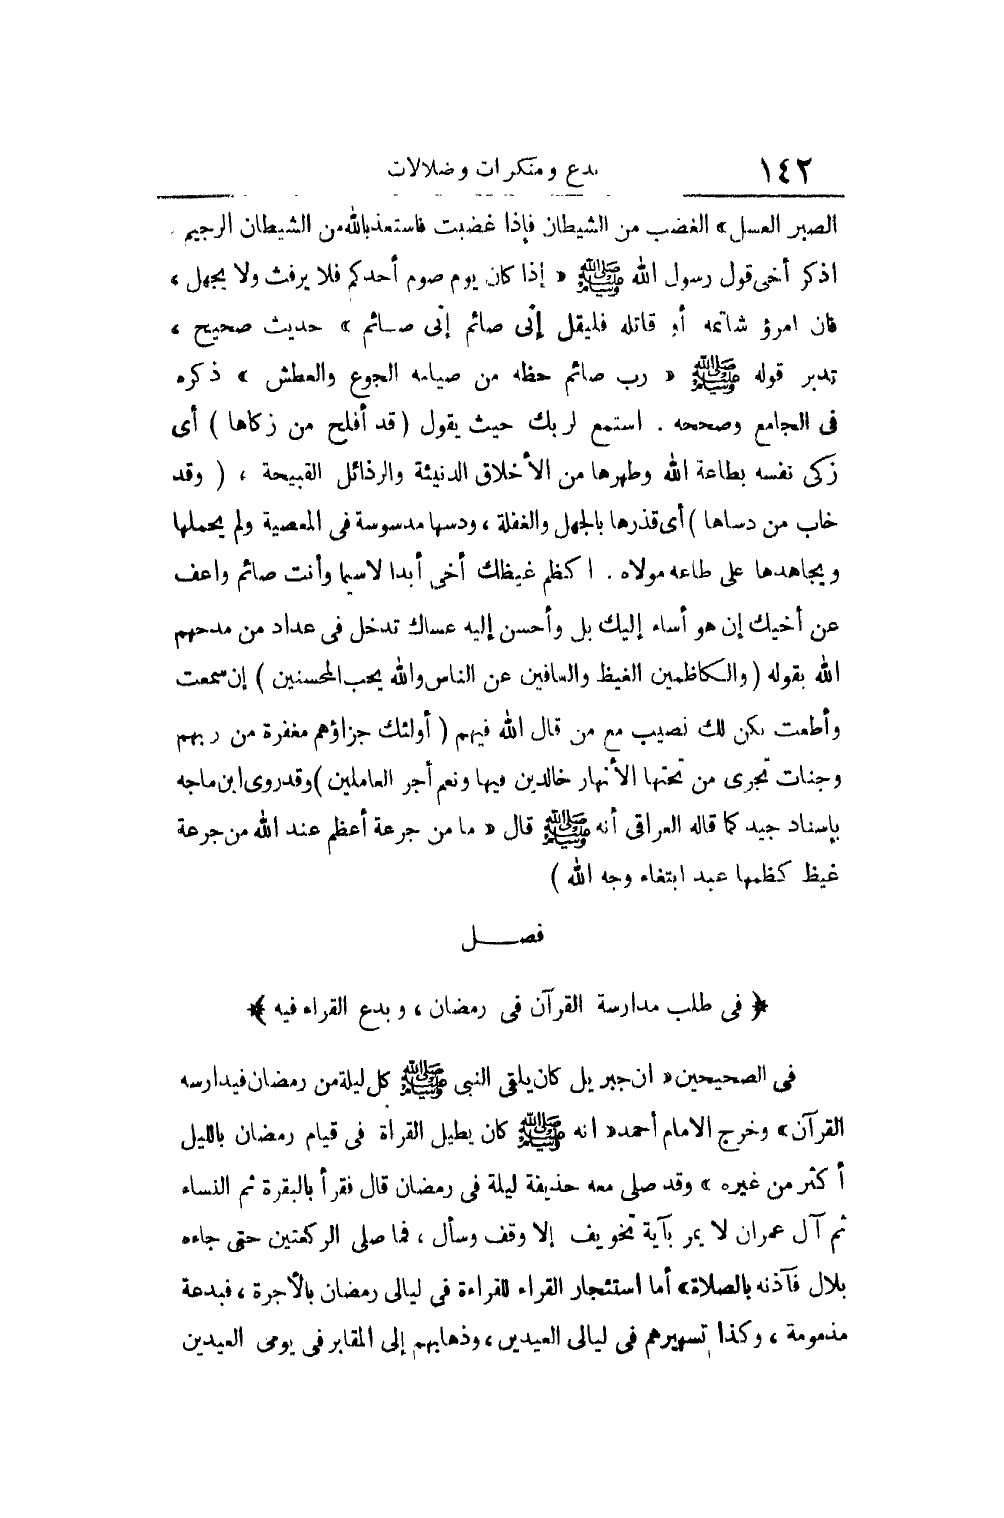 ١٤٢ بدع ومنكرات وضلالات
الصبر العسل» الغضب من الشيطان فإذا غضبت فاستعذ بالله من الشيطان الرجيم .
اذكر أخى قول رسول الله ﷺ « إذا كان يوم صوم أحدكم فلا يرفث ولا يجهل ،
فان امرؤ شاتمه أو قاتله فليقل إنى صائم إنى صائم » حديث صحيح ،
تدبر قوله ﷺ « رب صائم حظه من صيامه الجوع والعطش » ذكره
فى الجامع وصححه . استمع لربك حيث يقول ( قد أفلح من زكاها ) أى
زكى نفسه بطاعة الله وطهرها من الأخلاق الدنيئة والرذائل القبيحة ، ( وقد
خاب من دساها ) أى قذرها بالجهل والغفلة ، ودسها مدسوسة فى المعصية ولم يحملها
ويجاهدها على طاعه مولاه . اكظم غيظك أخى أبدا لاسيما وأنت صائم واعف
عن أخيك إن هو أساء إليك بل وأحسن إليه عساك تدخل فى عداد من مدحهم
الله بقوله ( والكاظمين الغيظ والعافين عن الناس والله يحب المحسنين ) إن سمعت
وأطعت يكن لك نصيب مع من قال الله فيهم ( أولئك جزاؤهم مغفرة من ربهم
وجنات تجرى من تحتها الأنهار خالدين فيها ونعم أجر العاملين ) وقد روى ابن ماجه
بإسناد جيد كما قاله العراقى أنه ﷺ قال « ما من جرعة أعظم عند الله من جرعة
غيظ كظمها عبد ابتغاء وجه الله )
فصـــل
﴿ فى طلب مدارسة القرآن فى رمضان ، وبدع القراء فيه ﴾
فى الصحيحين « ان جبريل كان يلقى النبى ﷺ كل ليلة من رمضان فيدارسه
القرآن » وخرج الامام أحمد « انه ﷺ كان يطيل القراة فى قيام رمضان بالليل
أكثر من غيره » وقد صلى معه حذيفة ليلة فى رمضان قال فقرأ بالبقرة ثم النساء
ثم آل عمران لا يمر بآية تخويف إلا وقف وسأل ، فما صلى الركعتين حتى جاءه
بلال فآذنه بالصلاة » أما استئجار القراء للقراءة فى ليالى رمضان بالأجرة ، فبدعة
مذمومة ، وكذا تسهيرهم فى ليالى العيدين ، وذهابهم إلى المقابر فى يومى العيدين